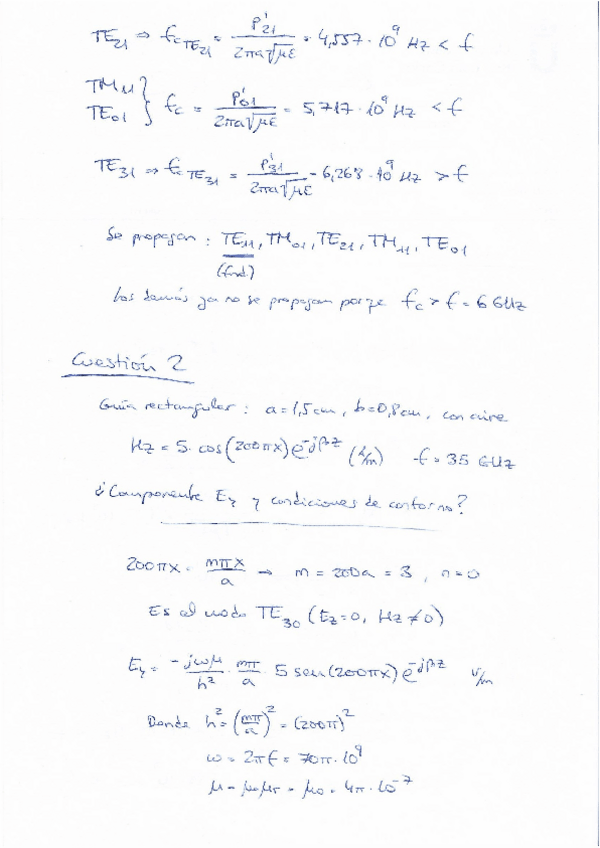 TE21 ⇒ fcTE21 = P'21 / 2πa√με = 4,557 · 10^9 Hz < f
TM11
TE01 } fc = P'01 / 2πa√με = 5,717 · 10^9 Hz < f
TE31 ⇒ fcTE31 = P'31 / 2πa√με = 6,263 · 10^9 Hz > f
Se propagan : TE11, TM01, TE21, TM11, TE01
(fnd.)
Los demás ya no se propagan porque fc > f = 6 GHz
Cuestión 2
Guía rectangular : a = 1,5 cm, b = 0,8 cm, con aire
Hz = 5 · cos(200πx) e^-jβz (A/m) f = 35 GHz
¿Componente Ey y condiciones de contorno?
200πx = mπx / a → m = 200a = 3, n = 0
Es el modo TE30 (Ez = 0, Hz ≠ 0)
Ey = -jωμ / h^2 · mπ / a · 5 sen(200πx) e^-jβz V/m
Donde h^2 = (mπ / a)^2 = (200π)^2
ω = 2πf = 70π · 10^9
μ = μ0μr = μ0 = 4π · 10^-7